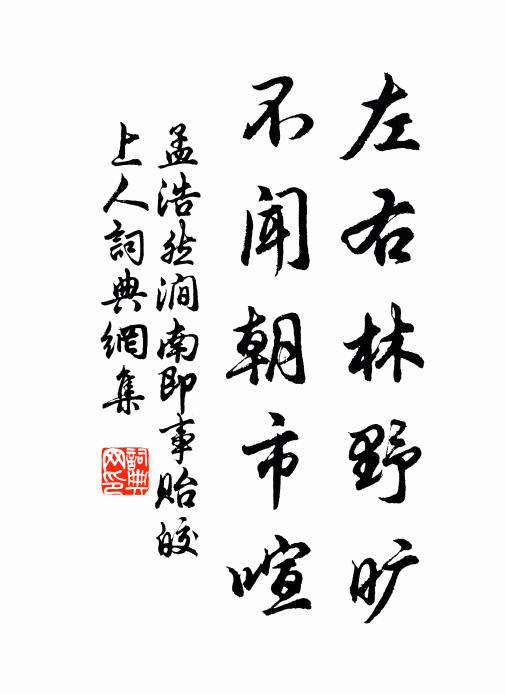 左右林野旷
不闻朝市喧
孟浩然涧南即事贻皎
上人词典網集
詞典网印